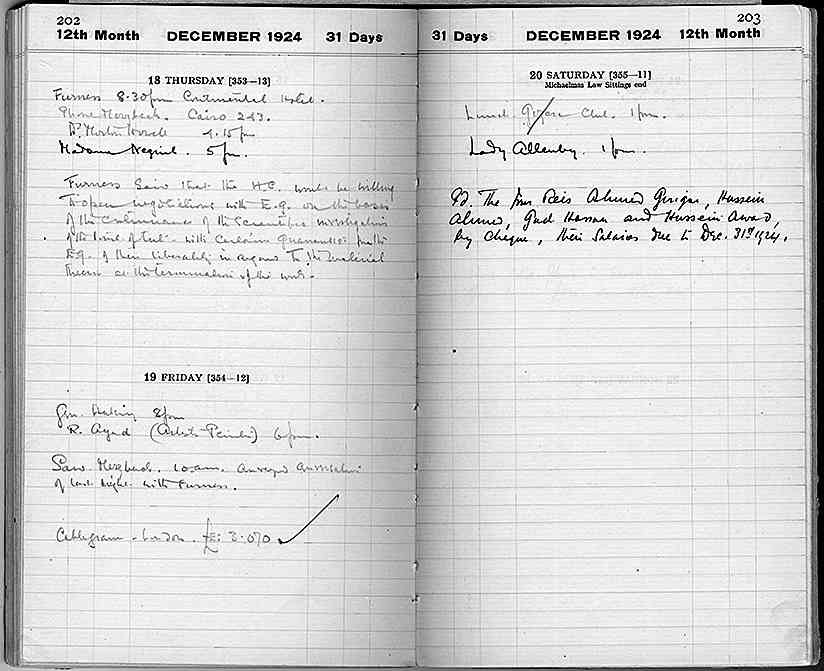 202
12th Month DECEMBER 1924 31 Days
18 THURSDAY [353—13]
Furness 8.30pm Continental Hotel.
Phone Merzbach. Cairo 243.
4.15pm
Madame Neguil. 5pm.
Furness Saw that the H.C. would be willing
to open negotiations with E.G. on the basis
of the continuance of the Scientific investigation
of the tomb of Tut. with
E.G. of their liberality in regard to the material
therein at the termination of the work.
19 FRIDAY [354—12]
Gen. 8pm
R. Ayad (Artist Painter) 6pm.
Saw Merzbach. 10.am.
of last night with Furness.
Cablegram - London. £E: 3.070
203
31 Days DECEMBER 1924 12th Month
20 SATURDAY [355—11]
Michaelmas Law Sittings end
Lunch Club. 1pm.
Lady Allenby. 1pm.
Pd. The four Reis Ahmed Gerigar, Hussein
Ahmed, Gad Hassan and Hussein Awad,
by cheque, their Salaries due to Dec. 31st 1924.